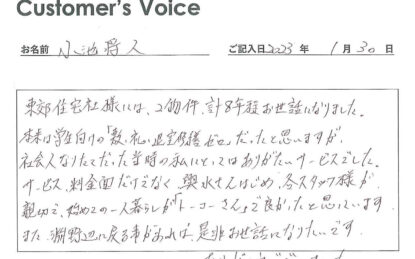 Customer's Voice
お名前 小池将人 ご記入日2023年 1月30日
東郊住宅社様には、2物件、計8年程お世話になりました。
本来は学生向けの「敷・礼・退室修繕ゼロ」だったと思いますが、
社会人なりたてだった当時の私にとってはありがたいサービスでした。
サービス、料金面だけでなく 輿水さんはじめ、各スタッフ様が
親切で、始めての一人暮らしが「トーコーさん」で良かったと思っています
また 淵野辺に戻る事があれば、是非お世話になりたいです。